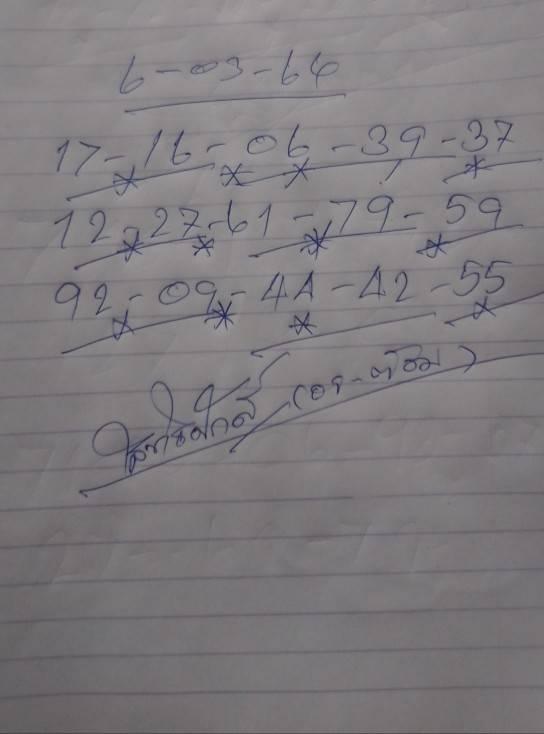 6-03-64
17-16-06-39-37
12-27-61-79-59
92-09-44-42-55